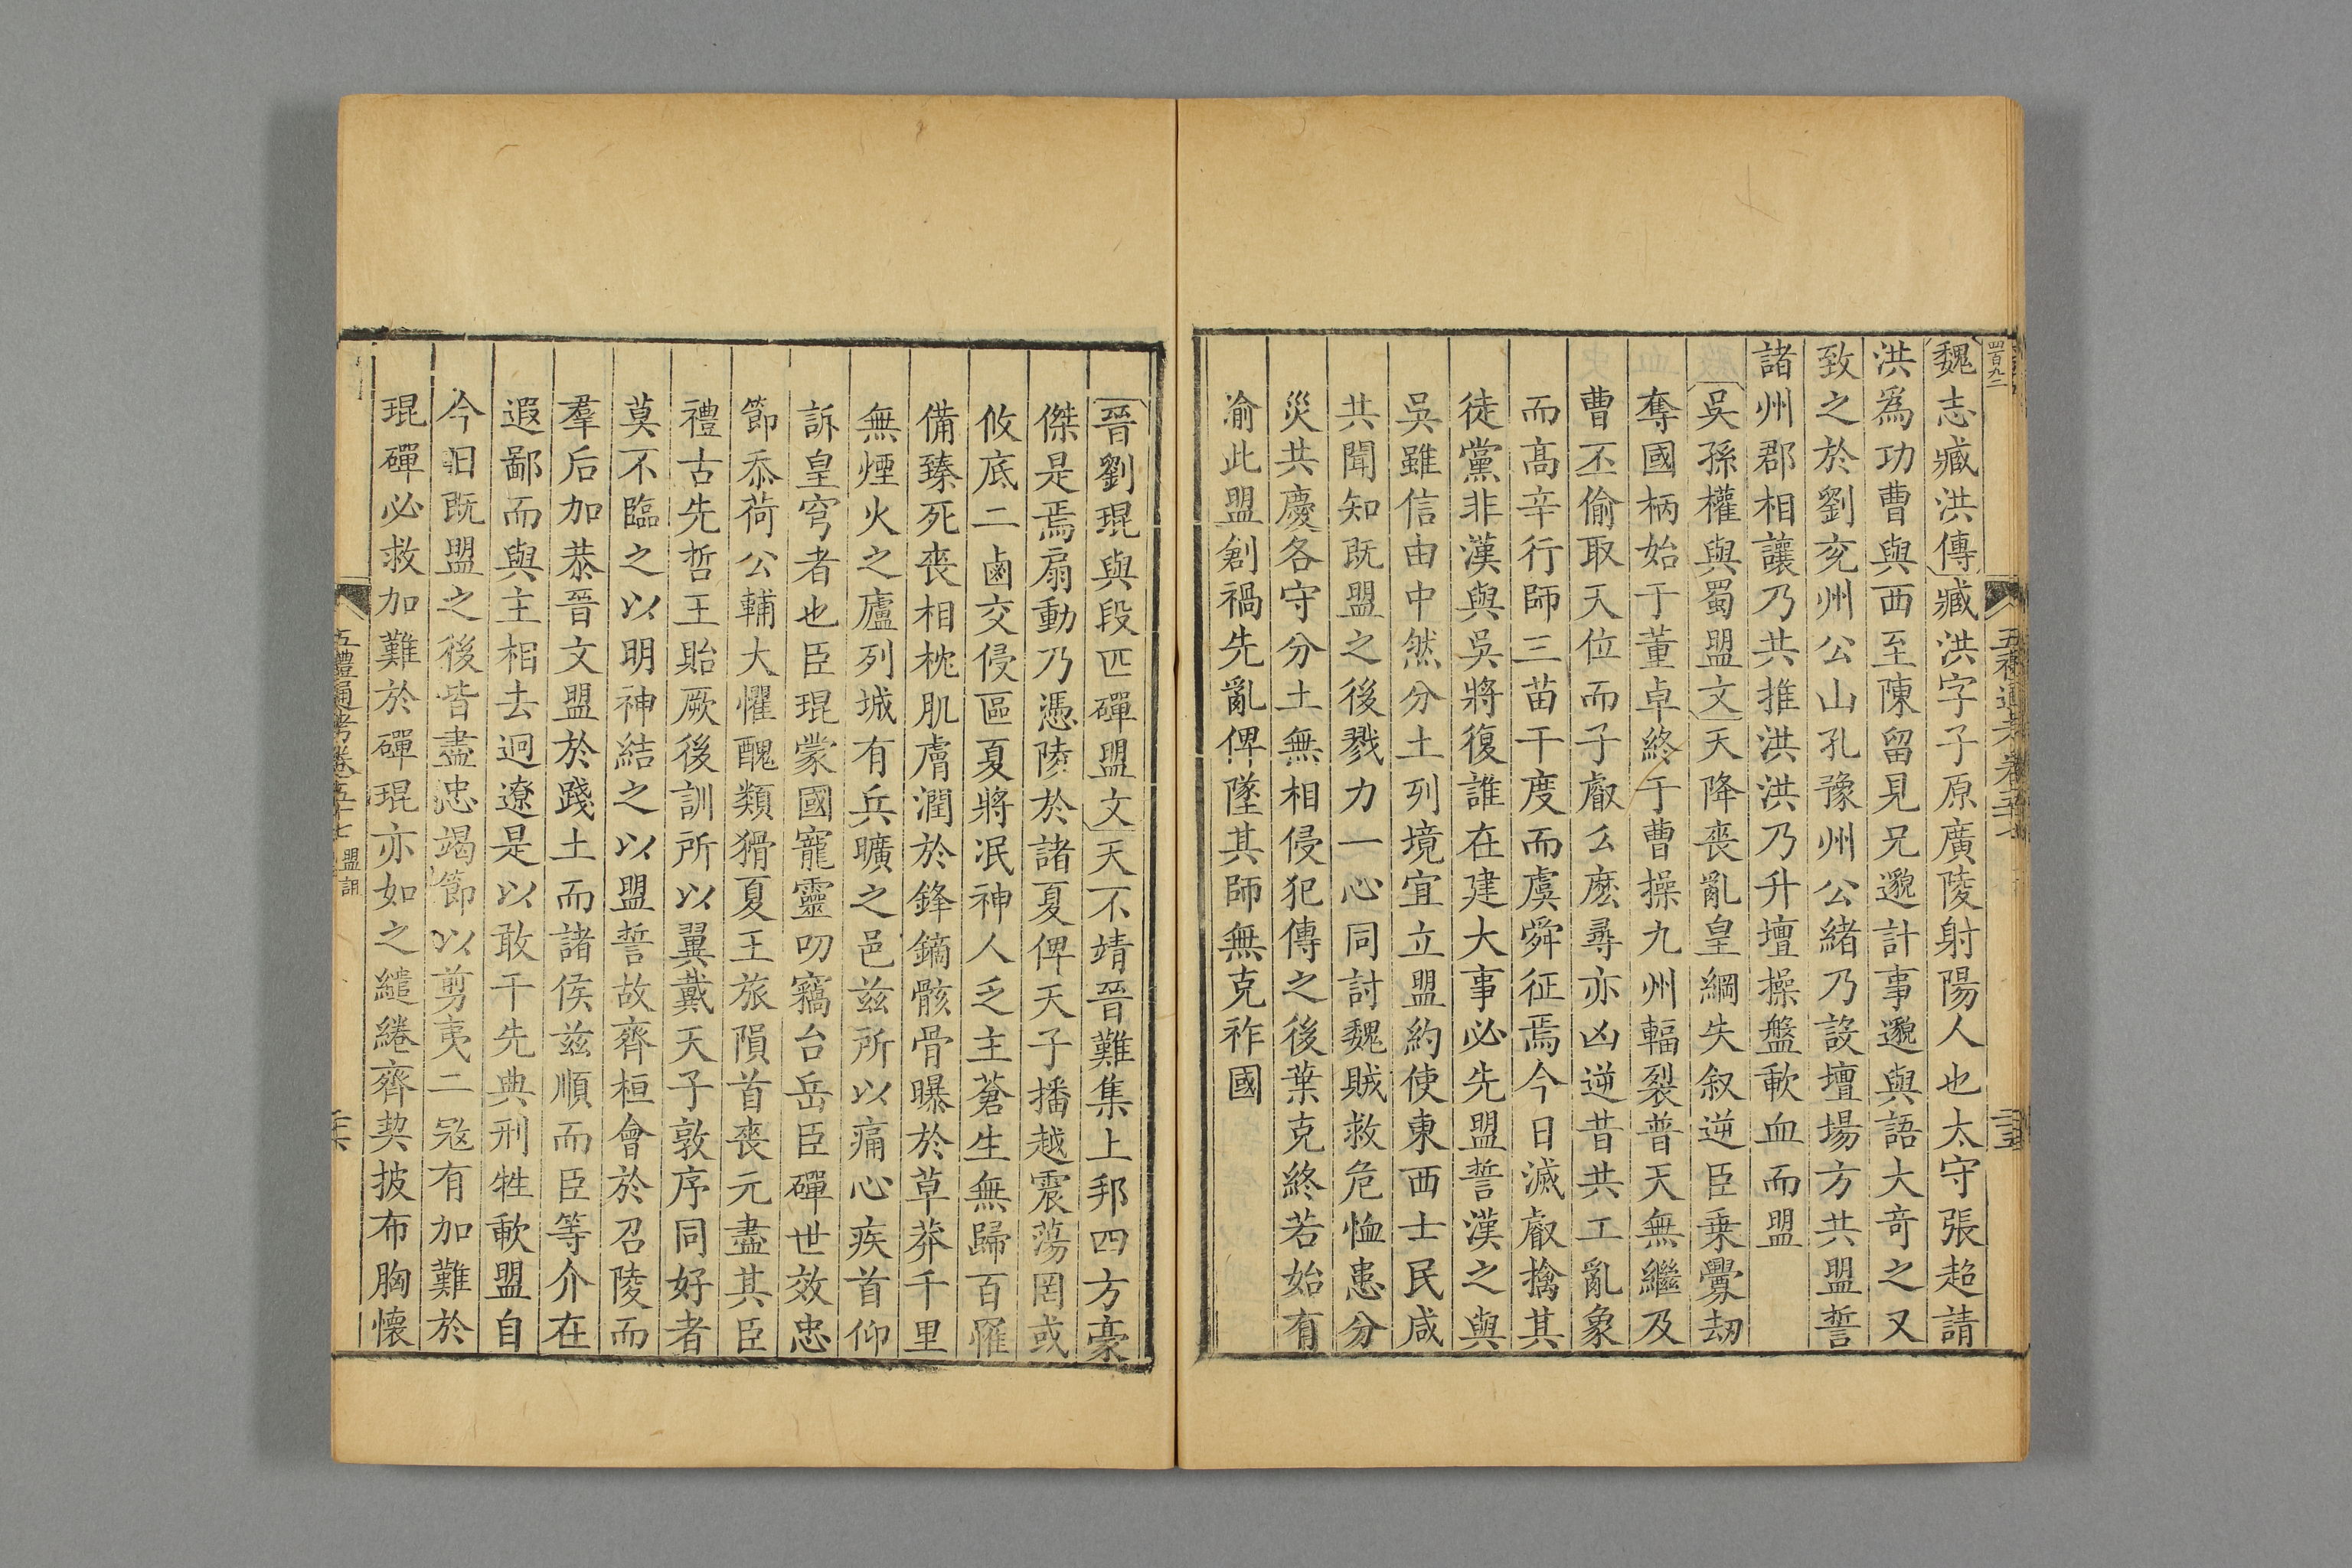 四百九二
魏志臧洪傳臧洪字子原廣陵射陽人也太守張超請
洪爲功曹與西至陳留見兄邈計事邈與語大奇之又
致之於劉兖州公山孔豫州公緒乃設壇場方共盟誓
諸州郡相讓乃共推洪洪乃升壇操盤歃血而盟
吳孫權與蜀盟文天降喪亂皇綱失叙逆臣乗釁刼
奪國柄始于董卓終于曹操九州輻裂普天無繼及
曹丕偷取天位而子叡么麽尋亦凶逆昔共工亂象
而高辛行師三苗干度而虞舜征焉今日滅叡擒其
徒黨非漢與吳將復誰在建大事必先盟誓漢之與
吳雖信由中然分土列境宜立盟約使東西士民咸
共聞知既盟之後戮力一心同討魏賊救危恤患分
災共慶各守分土無相侵犯傳之後葉克終若始有
渝此盟創禍先亂俾墜其師無克祚國
晉劉琨與段匹磾盟文天不靖晉難集上邦四方豪
傑是焉扇動乃憑陵於諸夏俾天子播越震蕩罔或
攸底二鹵交侵區夏將泯神人乏主蒼生無歸百罹
備臻死喪相枕肌膚潤於鋒鏑骸骨曝於草莽千里
無煙火之廬列城有兵曠之邑兹所以痛心疾首仰
訴皇穹者也臣琨蒙國寵靈叨竊台岳臣磾世效忠
節忝荷公輔大懼醜類猾夏王旅隕首喪元盡其臣
禮古先哲王貽厥後訓所以翼戴天子敦序同好者
莫不臨之以明神結之以盟誓故齊桓會於召陵而
羣后加恭晉文盟於踐土而諸侯兹順而臣等介在
遐鄙而與主相去迥遼是以敢干先典刑牲歃盟自
今日既盟之後皆盡忠竭節以剪夷二冦有加難於
琨磾必救加難於磾琨亦如之繾綣齊契披布胸懐
五禮通考卷五十七 盟詛